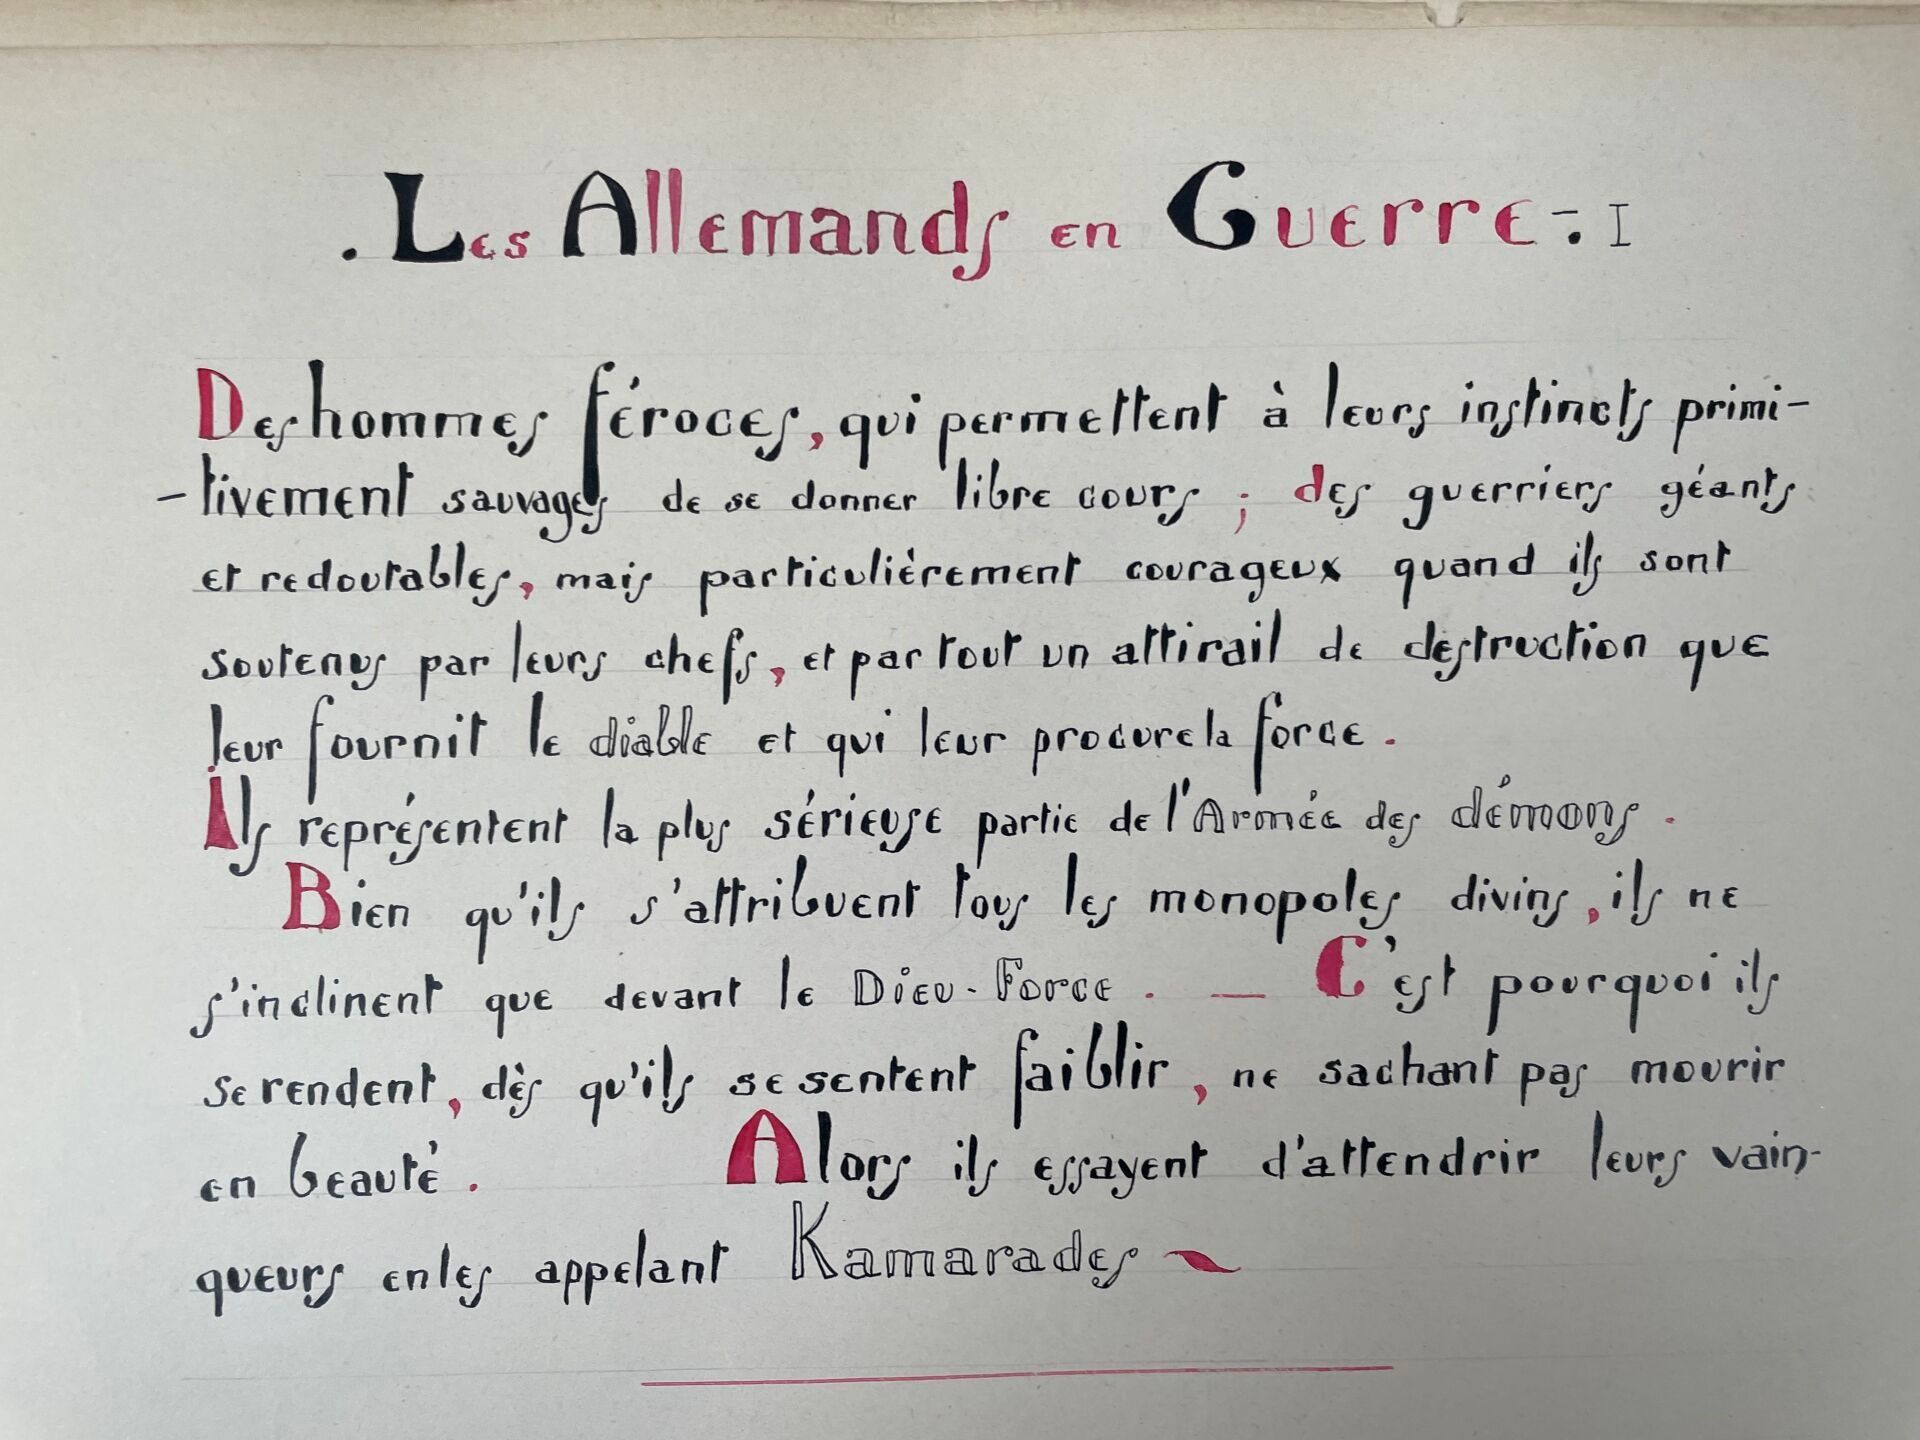 . Les Allemands en Guerre -. I
Des hommes féroces, qui permettent à leurs instincts primi-
-tivement sauvages de se donner libre cours ; des guerriers géants
et redoutables, mais particulièrement courageux quand ils sont
soutenus par leurs chefs, et par tout un attirail de destruction que
leur fournit le diable et qui leur procure la force .
Ils représentent la plus sérieuse partie de l'Armée des démons .
Bien qu'ils s'attribuent tous les monopoles divins, ils ne
s'inclinent que devant le Dieu-Force . — C'est pourquoi ils
se rendent, dès qu'ils se sentent faiblir, ne sachant pas mourir
en beauté . Alors ils essayent d'attendrir leurs vain-
queurs en les appelant Kamarades ~